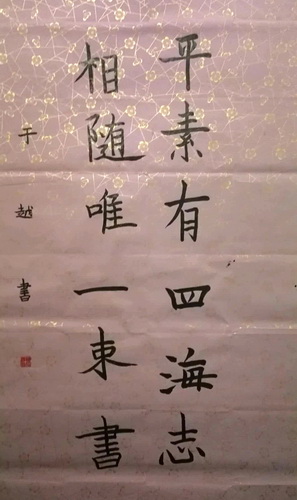 平素有四海志
相随唯一束書
于越書